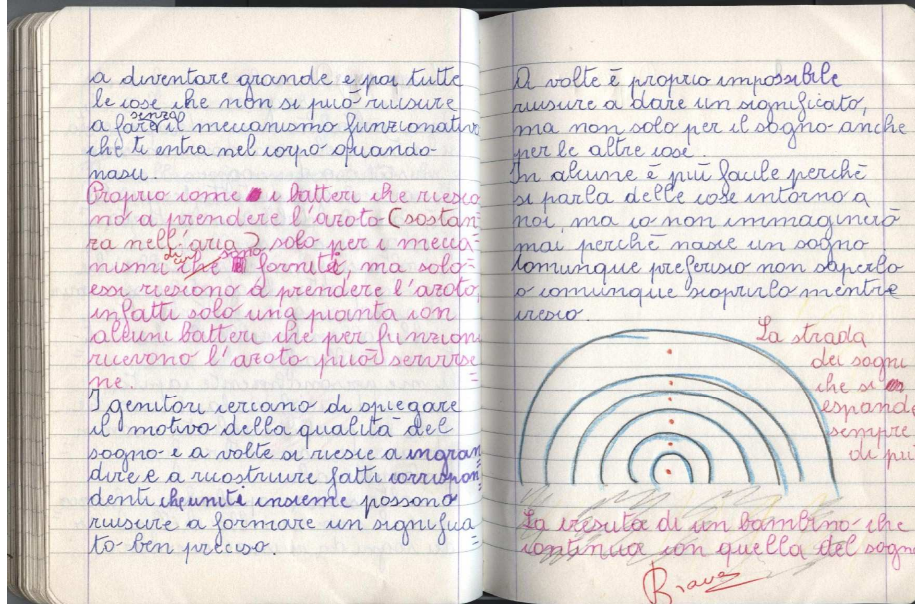 a diventare grande e poi tutte
le cose che non si può riuscire
a fare senza il meccanismo funzionativo
che ti entra nel corpo quando
nasci.
Proprio come i batteri che riesco
no a prendere l'azoto (sostan-
za nell'aria) solo per i mecca-
nismi di cui sono forniti, ma solo
essi riescono a prendere l'azoto,
infatti solo una pianta con
alcuni batteri che per funzion
ricevono l'azoto può servirse
ne.
I genitori cercano di spiegare
il motivo della qualità del
sogno e a volte si riesce a ingran
dire e a ricostruire fatti corrispon
denti che uniti insieme possono
riuscire a formare un significa
to ben preciso.
A volte è proprio impossibile
riuscire a dare un significato,
ma non solo per il sogno anche
per le altre cose.
In alcune è più facile perché
si parla delle cose intorno a
noi, ma io non immaginerò
mai perché nasce un sogno
comunque preferisco non saperlo
o comunque scoprirlo mentre
cresco.
La strada
dei sogni
che si
espande
sempre
di più
La crescita di un bambino che
continua con quella del sogno
Brava